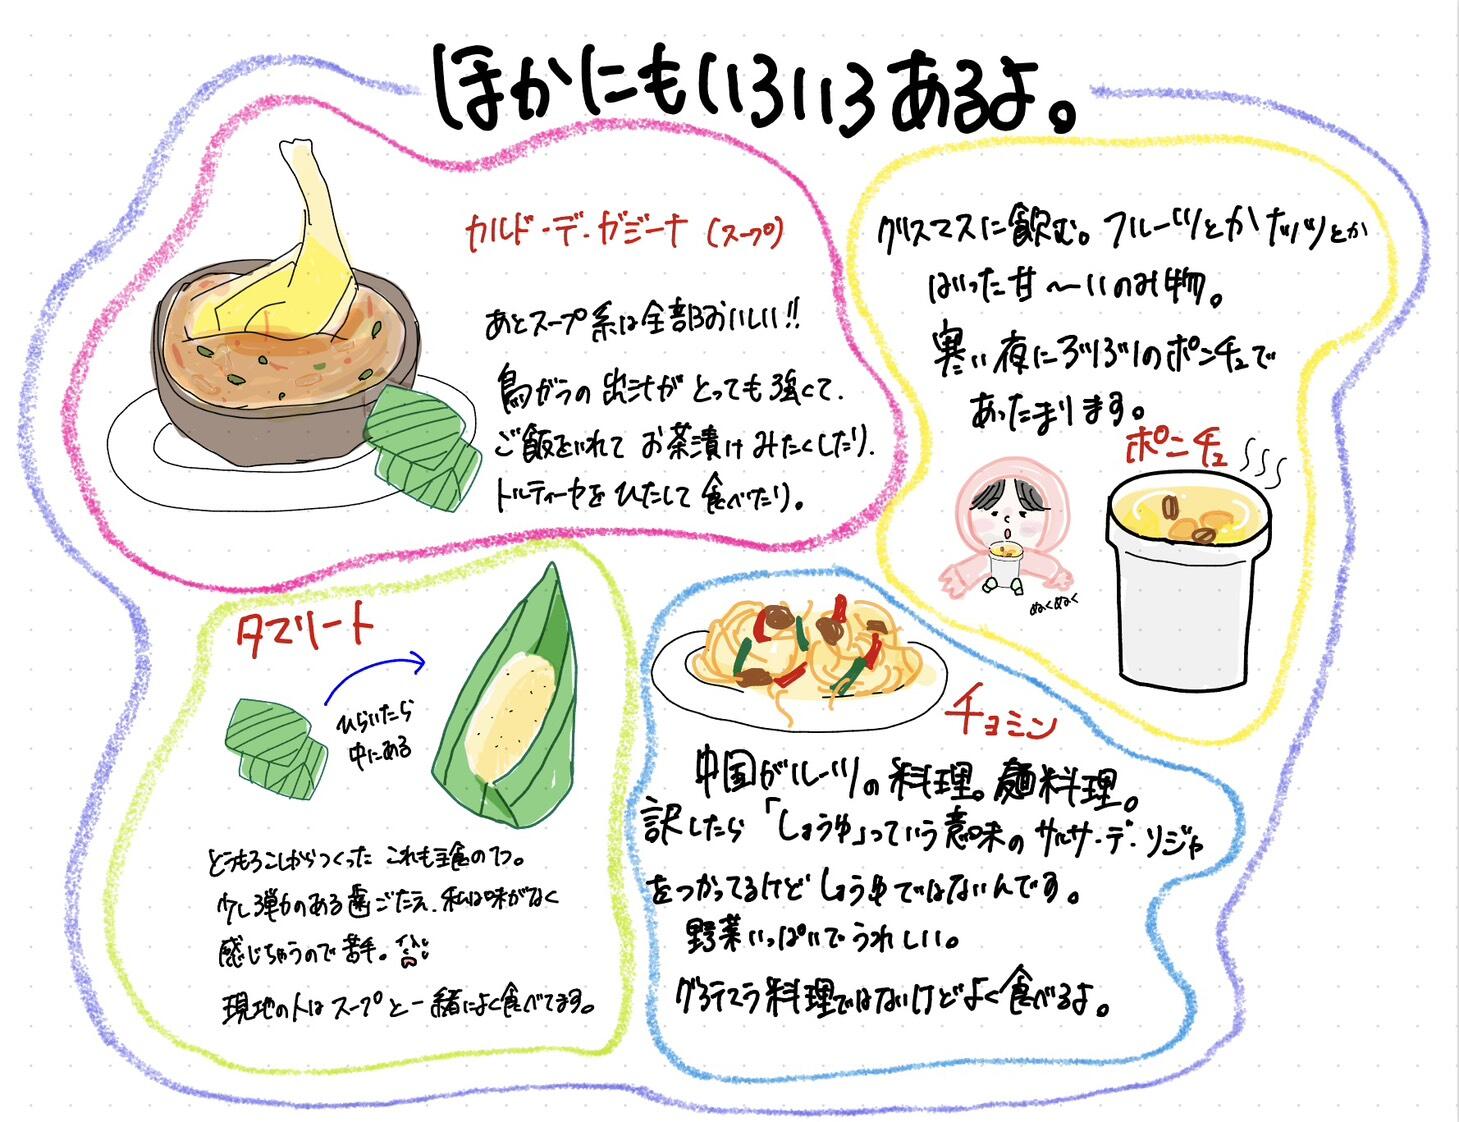 ほかにもいろいろあるよ。
カルド・デ・ガジーナ(スープ)
あとスープ系は全部おいしい!!
鳥がらの出汁がとっても強くて、
ご飯をいれてお茶漬けみたくしたり、
トルティーヤをひたして食べたり。
クリスマスに飲む。フルーツとかナッツとか
はいった甘〜いのみ物。
寒い夜にぶりぶりのポンチェで
あったまります。
ポンチェ
ぬくぬく
タマリート
ひらいたら
中にある
とうもろこしからつくった これも主食の1つ。
少し弾力のある歯ごたえ、私は味がなく
感じちゃうので苦手。
現地の人はスープと一緒によく食べてます。
チョミン
中国がルーツの料理。麺料理。
訳したら「しょうゆ」っていう意味のサルサ・デ・ソジャ
をつかってるけどしょうゆではないんです。
野菜いっぱいでうれしい。
グアテマラ料理ではないけどよく食べるよ。